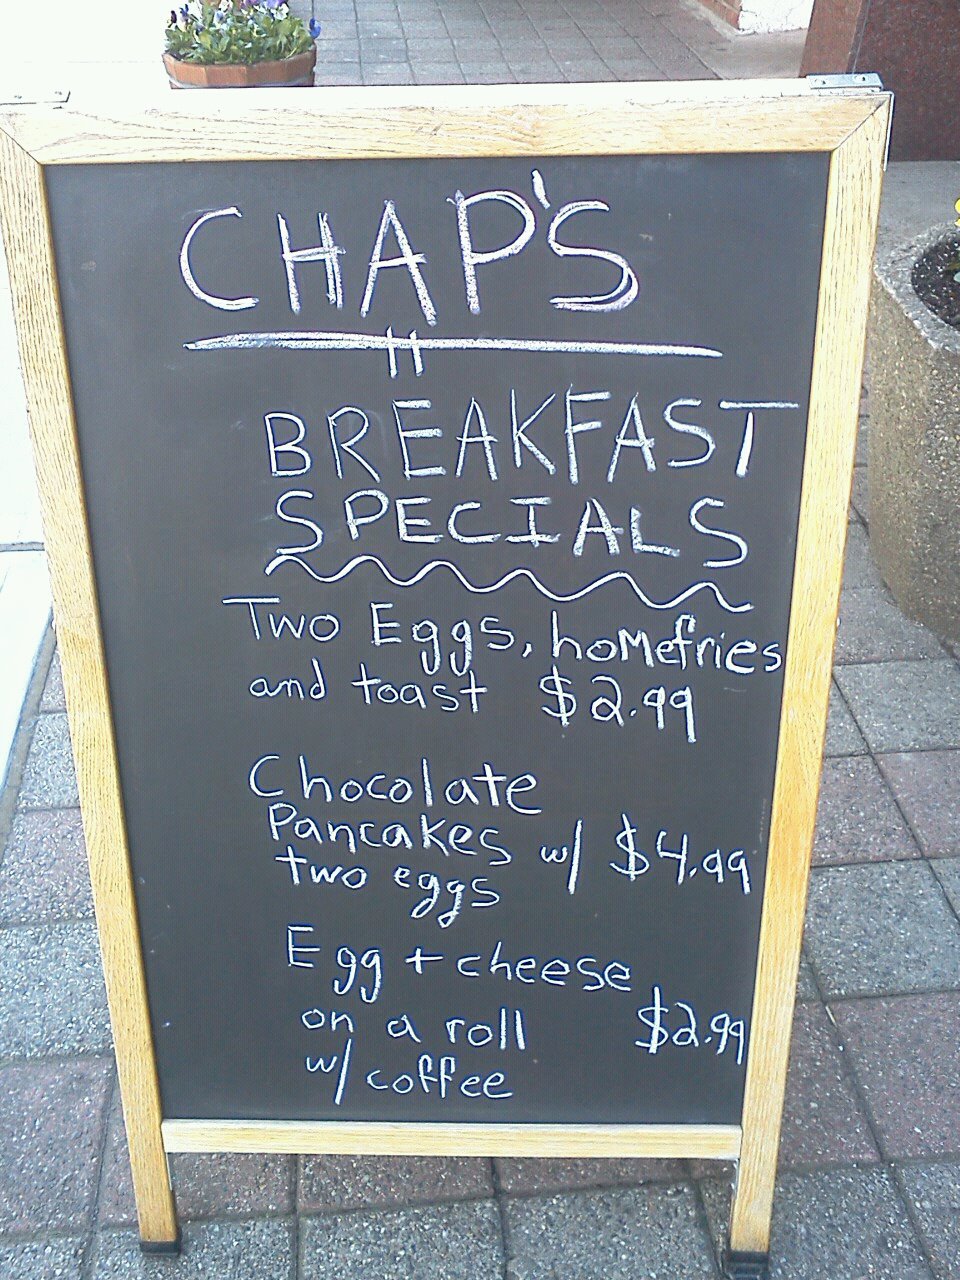 CHAP'S
BREAKFAST
SPECIALS
Two Eggs, homefries
and toast $2.99
Chocolate
Pancakes w/ $4.99
two eggs
Egg + cheese
on a roll $2.99
w/ coffee